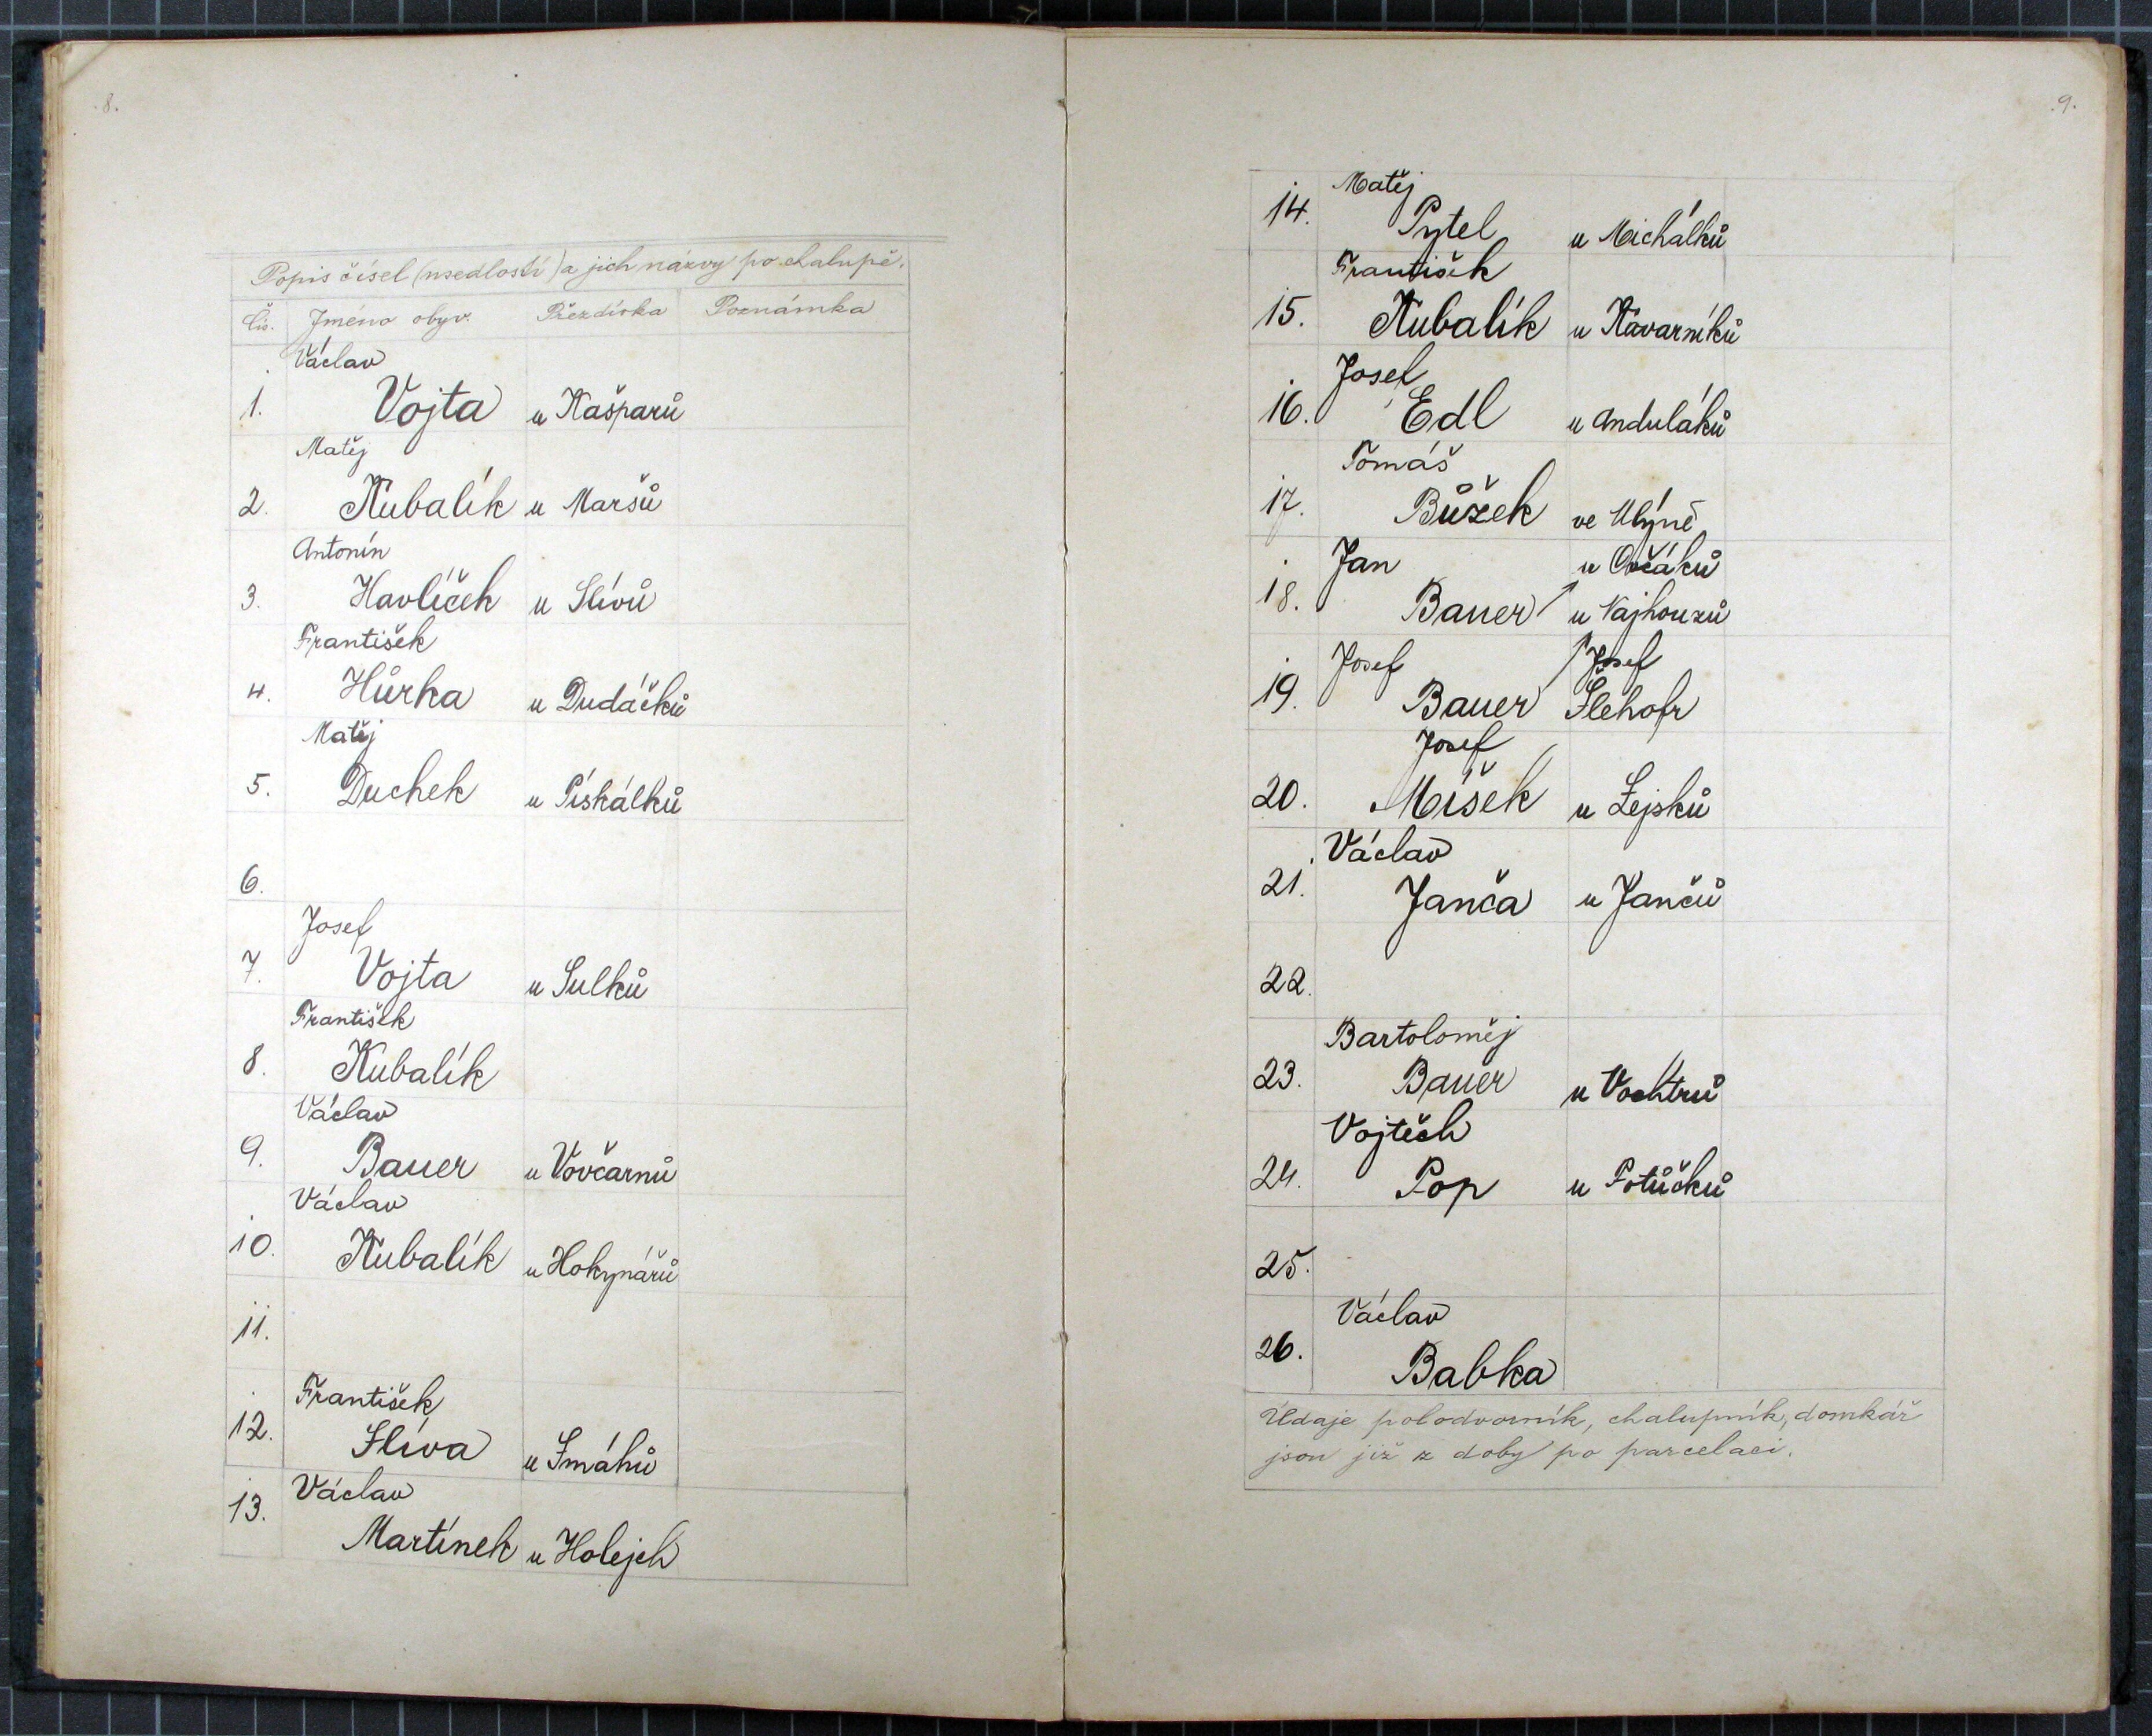 8.
Popis čísel (usedlostí) a jich názvy po chalupě.
Čís. Jméno obyv. Přezdívka Poznámka
Václav
1. Vojta u Kašparů
Matěj
2. Kubalík u Maršů
Antonín
3. Havlíček u Slívů
František
4. Hůrka u Dudáčků
Matěj
5. Duchek u Pískálků
6.
Josef
7. Vojta u Sulků
František
8. Kubalík
Václav
9. Bauer u Vovčarnů
Václav
10. Kubalík u Hokynářů
11.
František
12. Slíva u Smáhů
Václav
13. Martínek u Holejch
9.
Matěj
14. Pytel u Michálků
František
15. Kubalík u Kávarníků
Josef
16. Edl u Anduláků
Tomáš
17. Bůžek ve Mlýně
Jan u Ovčáků
18. Bauer u Vajhouzů
Josef Josef
19. Bauer Šlehofr
Josef
20. Míšek u Zejsků
Václav
21. Janča u Jančů
22.
Bartoloměj
23. Bauer u Vochtrů
Vojtěch
24. Pop u Potůčků
25.
Václav
26. Babka
Údaje polodvorník, chalupník, domkář
jsou již z doby po parcelaci.